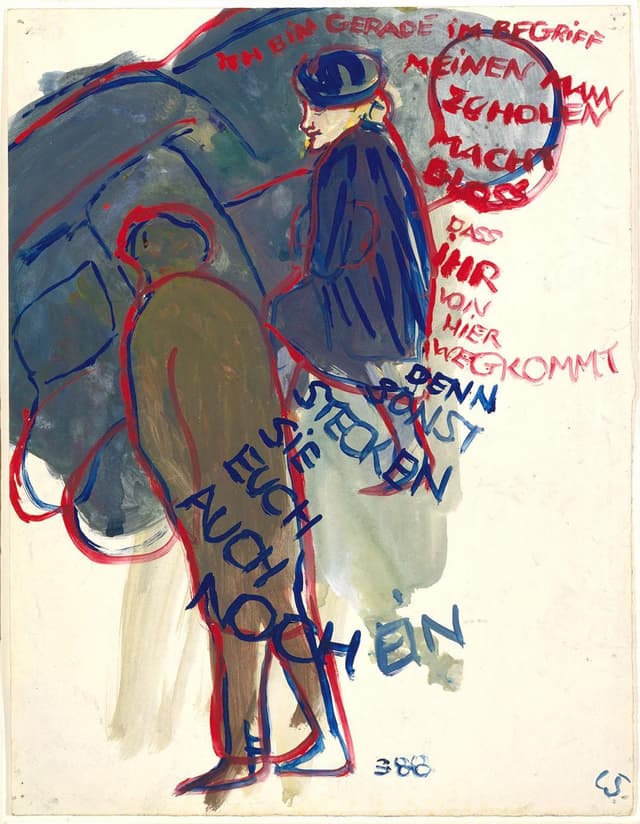 ICH BIN GERADE IM BEGRIFF
MEINEN MANN
ZU HOLEN
MACHT
BLOSS
DASS
IHR
VON
HIER
WEGKOMMT
DENN
SONST
STECKEN
SIE
EUCH
AUCH
NOCH EIN
388
CS